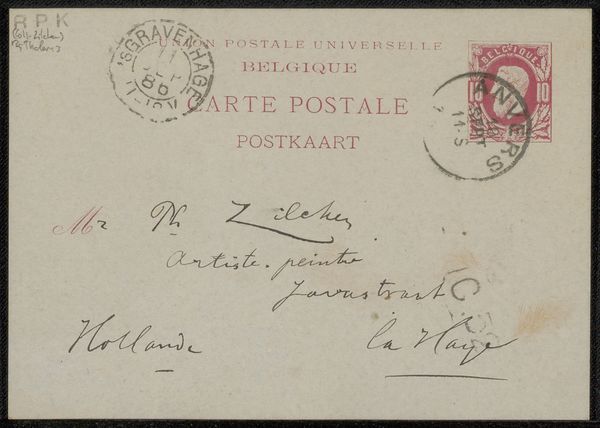 RPK
'SGRAVENHAGE
86
UNION POSTALE UNIVERSELLE
BELGIQUE
CARTE POSTALE
POSTKAART
BELGIQUE
10 10
ANVERS
SEPT
11-S
Mr Ph Zilcken
Artiste-peintre
Javastraat
Hollande
la Haye